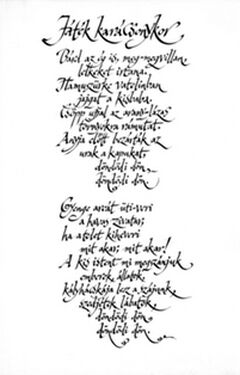 Játék karácsonykor
az ég is, meg-megvillan,
lelkeket irtana.
Hamuszürke vatelinban
jajgat a kisbaba.
Csöpp ujjal az arany-lázas
tornyokra rámutat.
Anyja előtt bezárták az
urak a kapukat,
döndödi dön,
döndödi dön.
Gyenge arcát üti-veri
a havas zivatar;
ha a telet kiheveri
mit akar, mit akar!
A kis istent mi megszánjuk
emberek, állatok,
kályhácskája lesz a szájunk,
szedjétek lábatok,
döndödi dön,
döndödi dön.